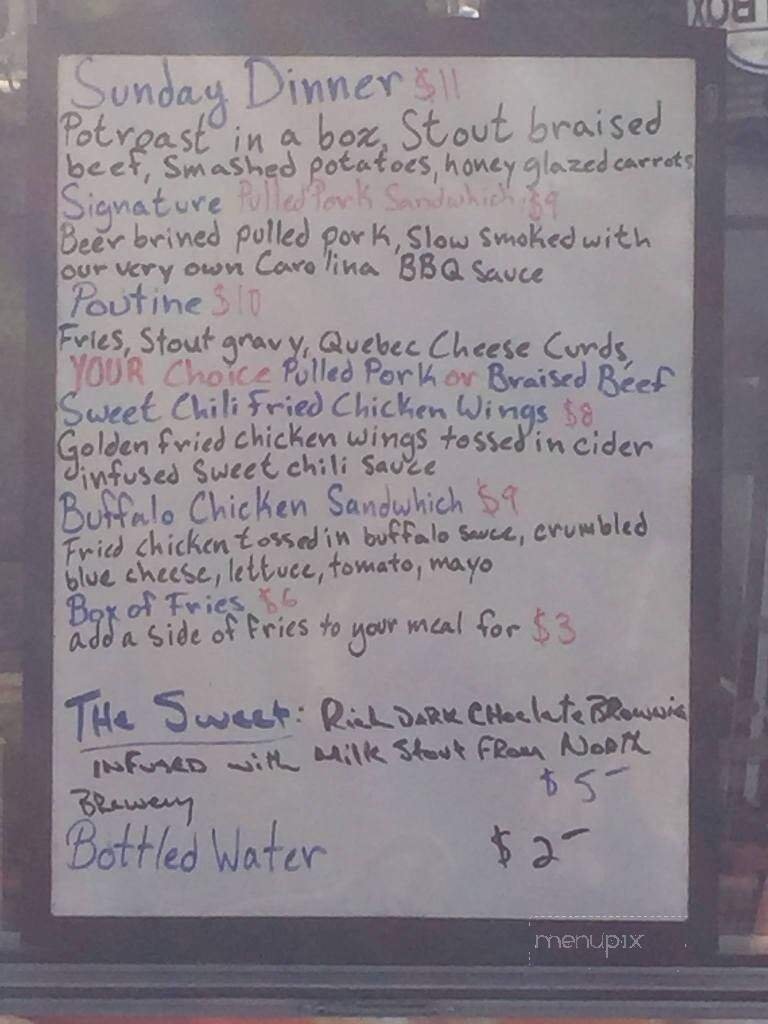 BOX
Sunday Dinner $11
Potroast in a box, Stout braised
beef, Smashed potatoes, honey glazed carrots
Signature Pulled Pork Sandwhich $9
Beer brined pulled pork, Slow smoked with
our very own Carolina BBQ Sauce
Poutine $10
Fries, Stout gravy, Quebec Cheese Curds,
YOUR Choice Pulled Pork or Braised Beef
Sweet Chili Fried Chicken Wings $8
Golden fried chicken wings tossed in cider
infused Sweet chili Sauce
Buffalo Chicken Sandwhich $9
Fried chicken tossed in buffalo sauce, crumbled
blue cheese, lettuce, tomato, mayo
Box of Fries $6
add a Side of Fries to your meal for $3
THE Sweet: Rich DARK CHoclate BRownie
INFUSED with Milk Stout FRom North
Brewery $5-
Bottled Water $2-
menupix